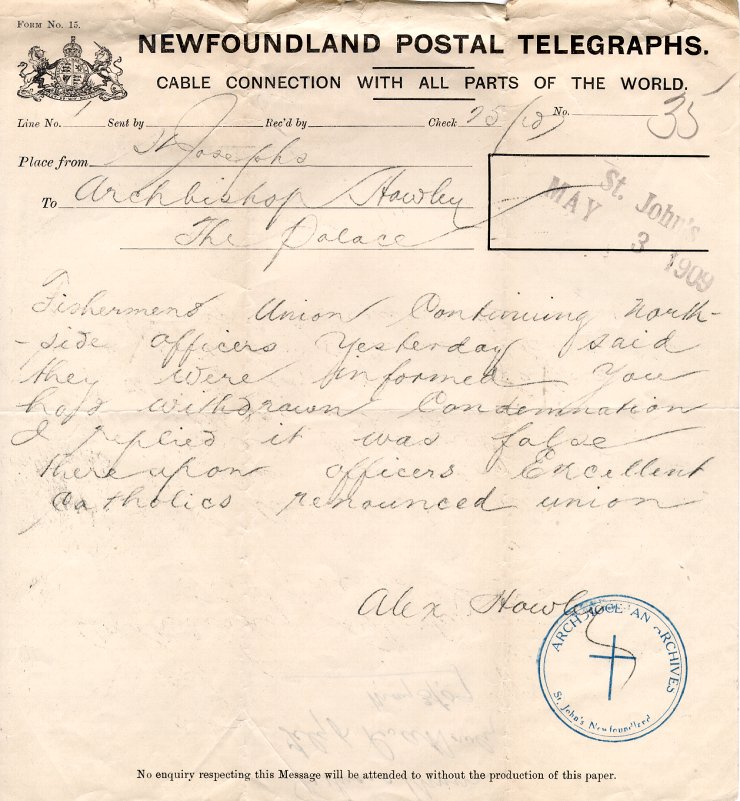 FORM No. 15.
NEWFOUNDLAND POSTAL TELEGRAPHS.
CABLE CONNECTION WITH ALL PARTS OF THE WORLD.
Line No. Sent by Rec'd by Check 25/ No. 35
Place from St Josephs
To Archbishop Howley
The Palace
St. John's
MAY 3 1909
Fishermens Union Continuing North-
-side officers Yesterday said
they were informed You
had withdrawn Condemnation
I replied it was false
thereupon officers Excellent
Catholics renounced union
Alex Howley
ARCHDIOCESAN ARCHIVES
St. John's Newfoundland
No enquiry respecting this Message will be attended to without the production of this paper.